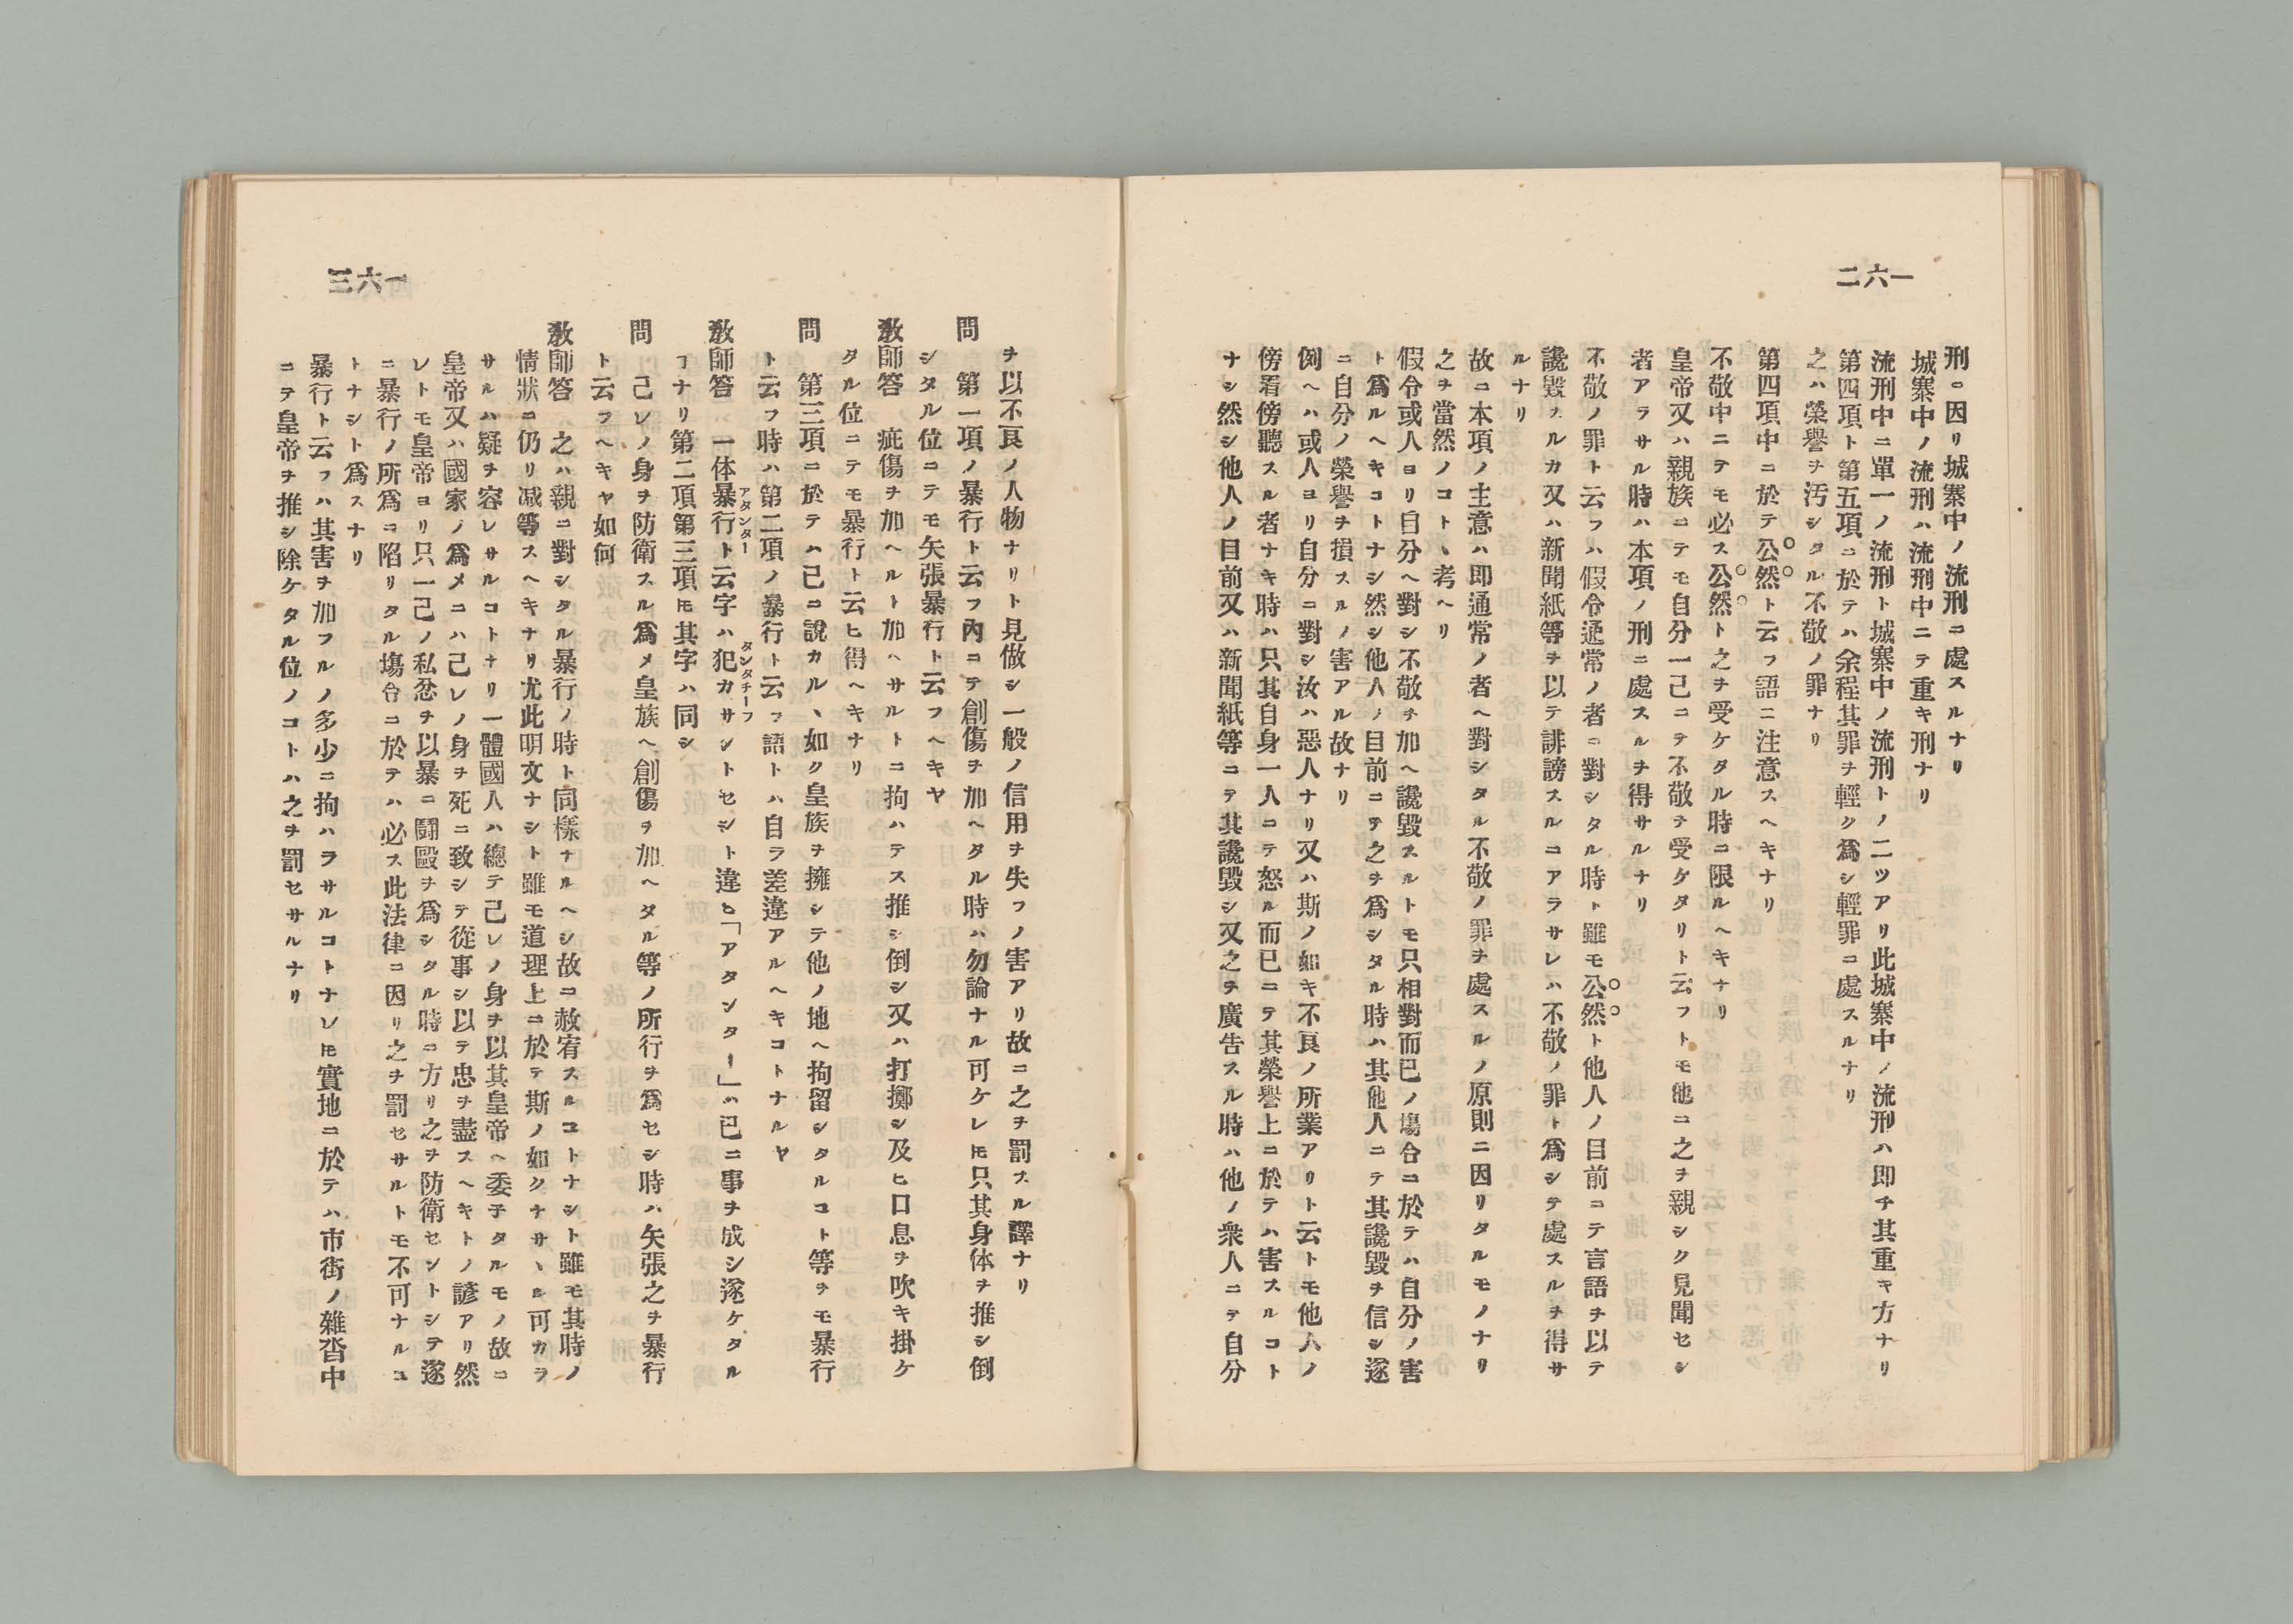 一六二
刑ニ因リ城寨中ノ流刑ニ處スルナリ
城寨中ノ流刑ハ流刑中ニテ重キ刑ナリ
流刑中ニ單一ノ流刑ト城寨中ノ流刑トノ二ツアリ此城寨中ノ流刑ハ即チ其重キ方ナリ
第四項ト第五項ニ於テハ余程其罪ヲ輕ク爲シ輕罪ニ處スルナリ
之ハ榮譽ヲ汚シタル不敬ノ罪ナリ
第四項中ニ於テ公然ト云フ語ニ注意スヘキナリ
不敬中ニテモ必ス公然ト之ヲ受ケタル時ニ限ルヘキナリ
皇帝又ハ親族ニテモ自分一己ニテ不敬ヲ受ケタリト云フトモ他ニ之ヲ親シク見聞セシ
者アラサル時ハ本項ノ刑ニ處スルヲ得サルナリ
不敬ノ罪ト云フハ假令通常ノ者ニ對シタル時ト雖モ公然ト他人ノ目前ニテ言語ヲ以テ
讒毀スルカ又ハ新聞紙等ヲ以テ誹謗スルニアラサレハ不敬ノ罪ト爲シテ處スルヲ得サ
ルナリ
故ニ本項ノ主意ハ即通常ノ者ヘ對シタル不敬ノ罪ヲ處スルノ原則ニ因リタルモノナリ
之ヲ當然ノコトヽ考ヘリ
假令或人ヨリ自分ヘ對シ不敬ヲ加ヘ讒毀スルトモ只相對而已ノ塲合ニ於テハ自分ノ害
ト爲ルヘキコトナシ然シ他人ノ目前ニテ之ヲ爲シタル時ハ其他人ニテ其讒毀ヲ信シ遂
ニ自分ノ榮譽ヲ損スルノ害アル故ナリ
例ヘハ或人ヨリ自分ニ對シ汝ハ惡人ナリ又ハ斯ノ如キ不良ノ所業アリト云トモ他人ノ
傍看傍聽スル者ナキ時ハ只其自身一人ニテ怒ル而已ニテ其榮譽上ニ於テハ害スルコト
ナシ然シ他人ノ目前又ハ新聞紙等ニテ其讒毀シ又之ヲ廣告スル時ハ他ノ衆人ニテ自分
一六三
ヲ以不良ノ人物ナリト見做シ一般ノ信用ヲ失フノ害アリ故ニ之ヲ罰スル譯ナリ
問　第一項ノ暴行ト云フ内ニテ創傷ヲ加ヘタル時ハ勿論ナル可ケレモ只其身体ヲ推シ倒
シタル位ニテモ矢張暴行ト云フヘキヤ
敎師答　疵傷ヲ加ヘルト加ヘサルトニ拘ハテス推シ倒シ又ハ打擲シ及ヒ口息ヲ吹キ掛ケ
タル位ニテモ暴行ト云ヒ得ヘキナリ
問　第三項ニ於テハ己ニ說カルヽ如ク皇族ヲ擁シテ他ノ地ヘ拘留シタルコト等ヲモ暴行
ト云フ時ハ第二項ノ暴行ト云フ語トハ自ラ差違アルヘキコトナルヤ
敎師答　一体暴行アタンタート云字ハ犯カサシトセシタンタチーフト違ヒ「アタンター」ハ已ニ事ヲ成シ遂ケタル
ヿナリ第二項第三項モ其字ハ同シ
問　己レノ身ヲ防衛スル爲メ皇族ヘ創傷ヲ加ヘタル等ノ所行ヲ爲セシ時ハ矢張之ヲ暴行
ト云フヘキヤ如何
敎師答　之ハ親ニ對シタル暴行ノ時ト同樣ナルヘシ故ニ赦宥スルコトナシト雖モ其時ノ
情狀ニ仍リ减等スヘキナリ尤此明文ナシト雖モ道理上ニ於テ斯ノ如クナサヽル可カラ
サルハ疑ヲ容レサルコトナリ一體國人ハ總テ己レノ身ヲ以其皇帝ヘ委子タルモノ故ニ
皇帝又ハ國家ノ爲メニハ己レノ身ヲ死ニ致シテ從事シ以テ忠ヲ盡スヘキトノ諺アリ然
レトモ皇帝ヨリ只一己ノ私忿ヲ以暴ニ鬪毆ヲ爲シタル時ニ方リ之ヲ防衛セントシテ遂
ニ暴行ノ所爲ニ陷リタル塲合ニ於テハ必ス此法律ニ因リ之ヲ罰セサルトモ不可ナルコ
トナシト爲スナリ
暴行ト云フハ其害ヲ加フルノ多少ニ拘ハラサルコトナレモ實地ニ於テハ市街ノ雜沓中
ニテ皇帝ヲ推シ除ケタル位ノコトハ之ヲ罰セサルナリ